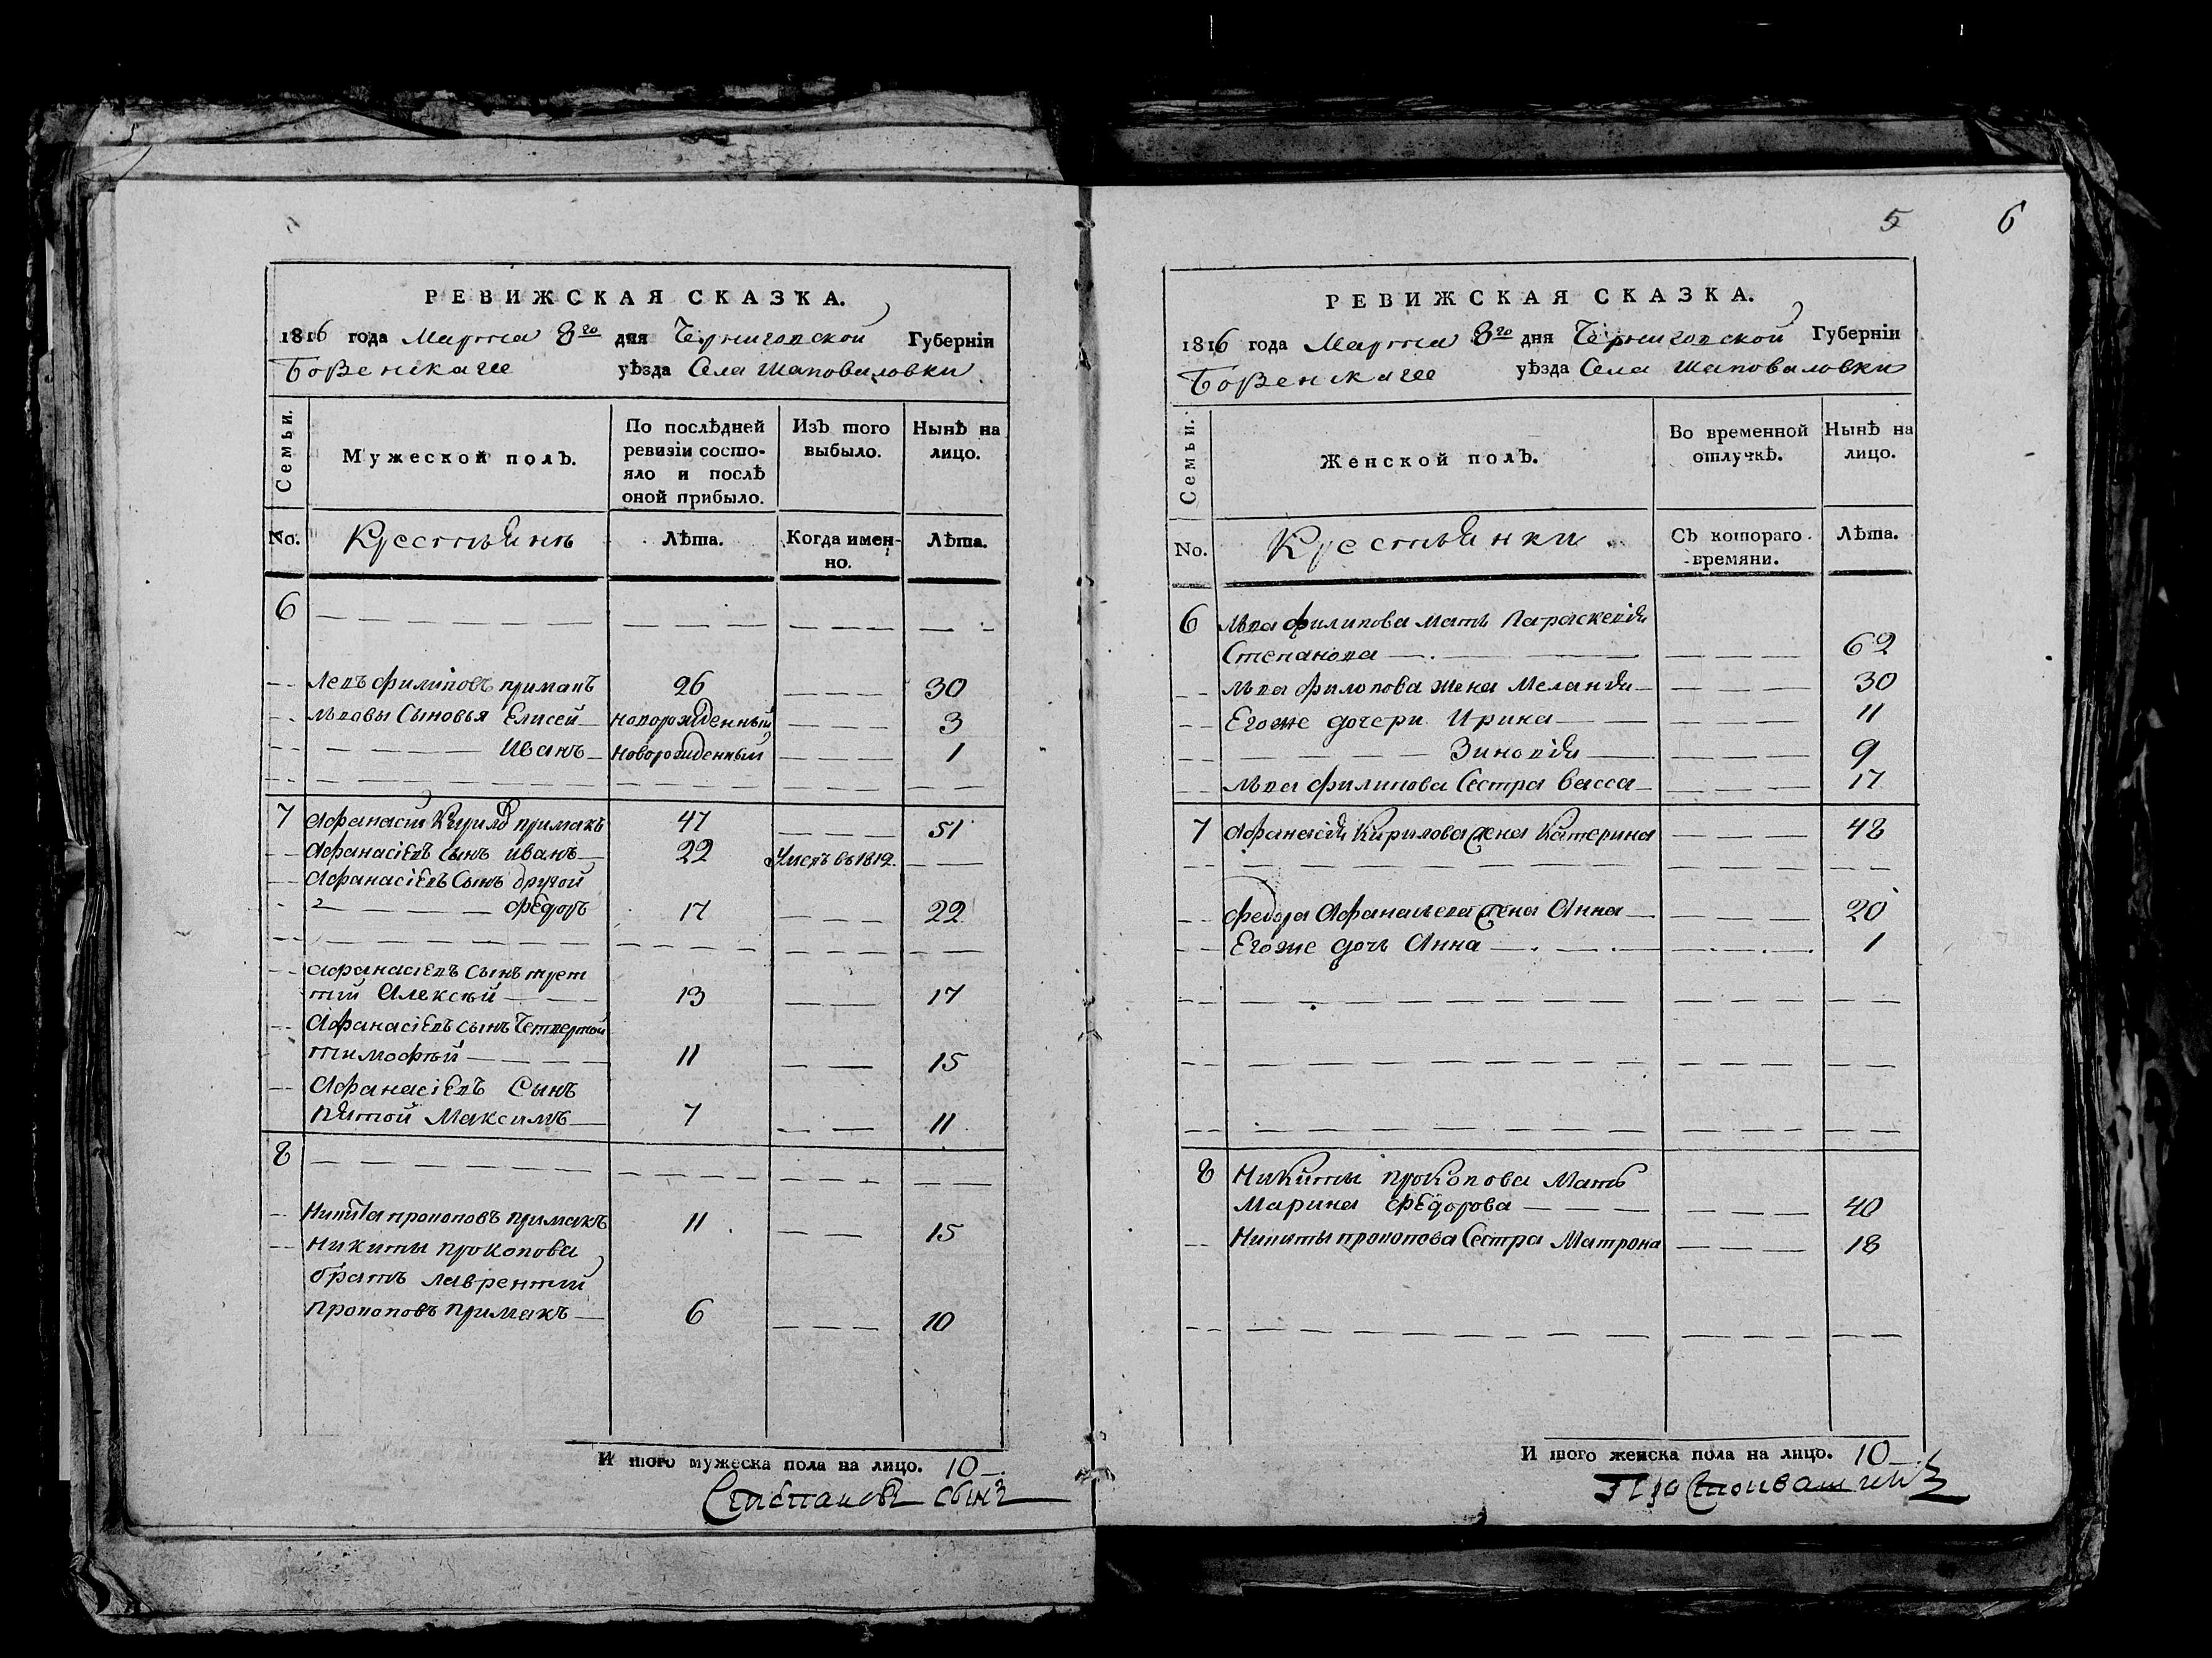 РЕВИЖСКАЯ СКАЗКА.
1816 года Марта 8го дня Черниговской Губерніи
Борзенскаго уѣзда Села Шаповаловки
Семьи.
Мужеской полъ.
По послѣдней ревизіи состояло и послѣ оной прибыло.
Изъ того выбыло.
Нынѣ на лицо.
No. Крестьянъ Лѣта. Когда именно. Лѣта.
6
Левъ филиповъ примакъ 26 30
Львовы Сыновья Елисей новорожденный 3
Иванъ новорожденный 1
7 Афанасій Кирилов примакъ 47 51
Афанасіевъ сынъ иванъ 22 Умеръ въ 1812
Афанасіевъ Сынъ другой
федоръ 17 22
Афанасіевъ Сынъ трет
тій Алексѣй 13 17
Афанасіевъ сынъ Четвертой
тимофѣй 11 15
Афанасіевъ Сынъ
пятой Максимъ 7 11
8
Никита прокоповъ примакъ 11 15
Никиты прокопова
братъ лаврентій
прокоповъ примакъ 6 10
И того мужеска пола на лицо. 10
сынъ
5 6
РЕВИЖСКАЯ СКАЗКА.
1816 года Марта 8го дня Черниговской Губерніи
Борзенскаго уѣзда Села Шаповаловки
Семьи.
Женской полъ.
Во временной отлучкѣ.
Нынѣ на лицо.
No. Крестьянки Съ котораго времяни. Лѣта.
6 Льва филипова мать Параскевія
Степанова 62
Льва филипова жена Меланія 30
Егоже дочери Ирина 11
Зиновія 9
Льва филипова Сестра васса 17
7 Афанасія Кирилова жена Катерина 48
федора Афанасьева жена Анна 20
Егоже дочь Анна 1
8 Никиты прокопова Мать
Марина федорова 40
Никиты прокопова Сестра Матрона 18
И того женска пола на лицо. 10